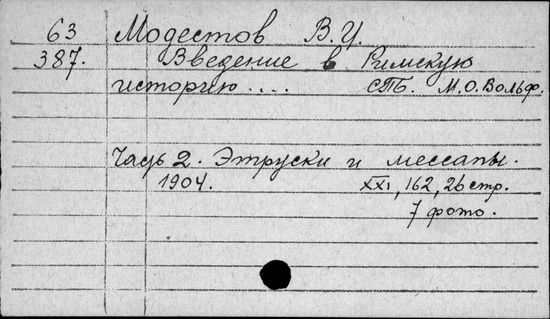 63 Модестов В. И.
387. Введение в Римскую
историю.... СПБ. М.О.Вольф.
Часть 2. Этруски и мессапы.
1904. XXI, 162, 26 стр.
7 фото.